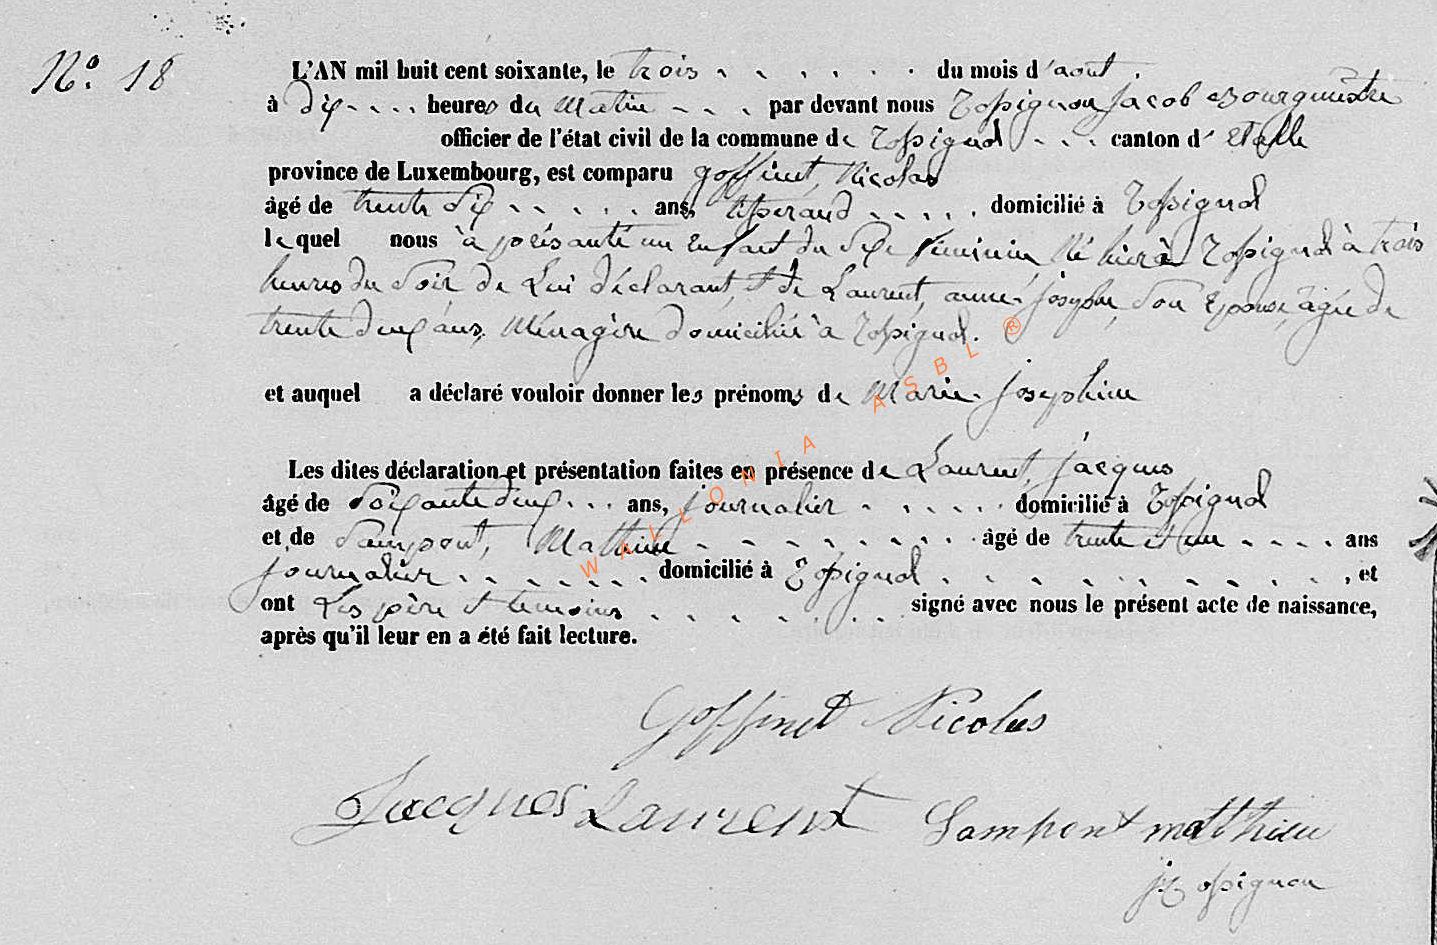 N° 18
L'AN mil huit cent soixante, le trois du mois d'août.
à dix heures du matin par devant nous Rossignon Jacob Bourgmestre
officier de l'état civil de la commune de Rossignol canton d'Etalle
province de Luxembourg, est comparu goffinet, Nicolas
âgé de trente six ans, domicilié à Rossignol
lequel nous à présanté un Enfant du Sexe féminin Né hier à Rossignol à trois
heures du Soir de Lui déclarant, et de Laurent, anne Josephe, Son Epouse, agée de
trente deux ans, Ménagère domiciliée à Rossignol.
et auquel a déclaré vouloir donner les prénoms de Marie Josephine
Les dites déclaration et présentation faites en présence de Laurent, Jacques
âgé de Soixante deux ans, journalier domicilié à Rossignol
et de Sampont, Mathieu âgé de trente et un ans
journalier domicilié à Rossignol, et
ont Les père et temoins signé avec nous le présent acte de naissance,
après qu'il leur en a été fait lecture.
Goffinet Nicolas
Jacques Laurent Sampont matthieu
J Rossignon
WALLONIA ASBL ®